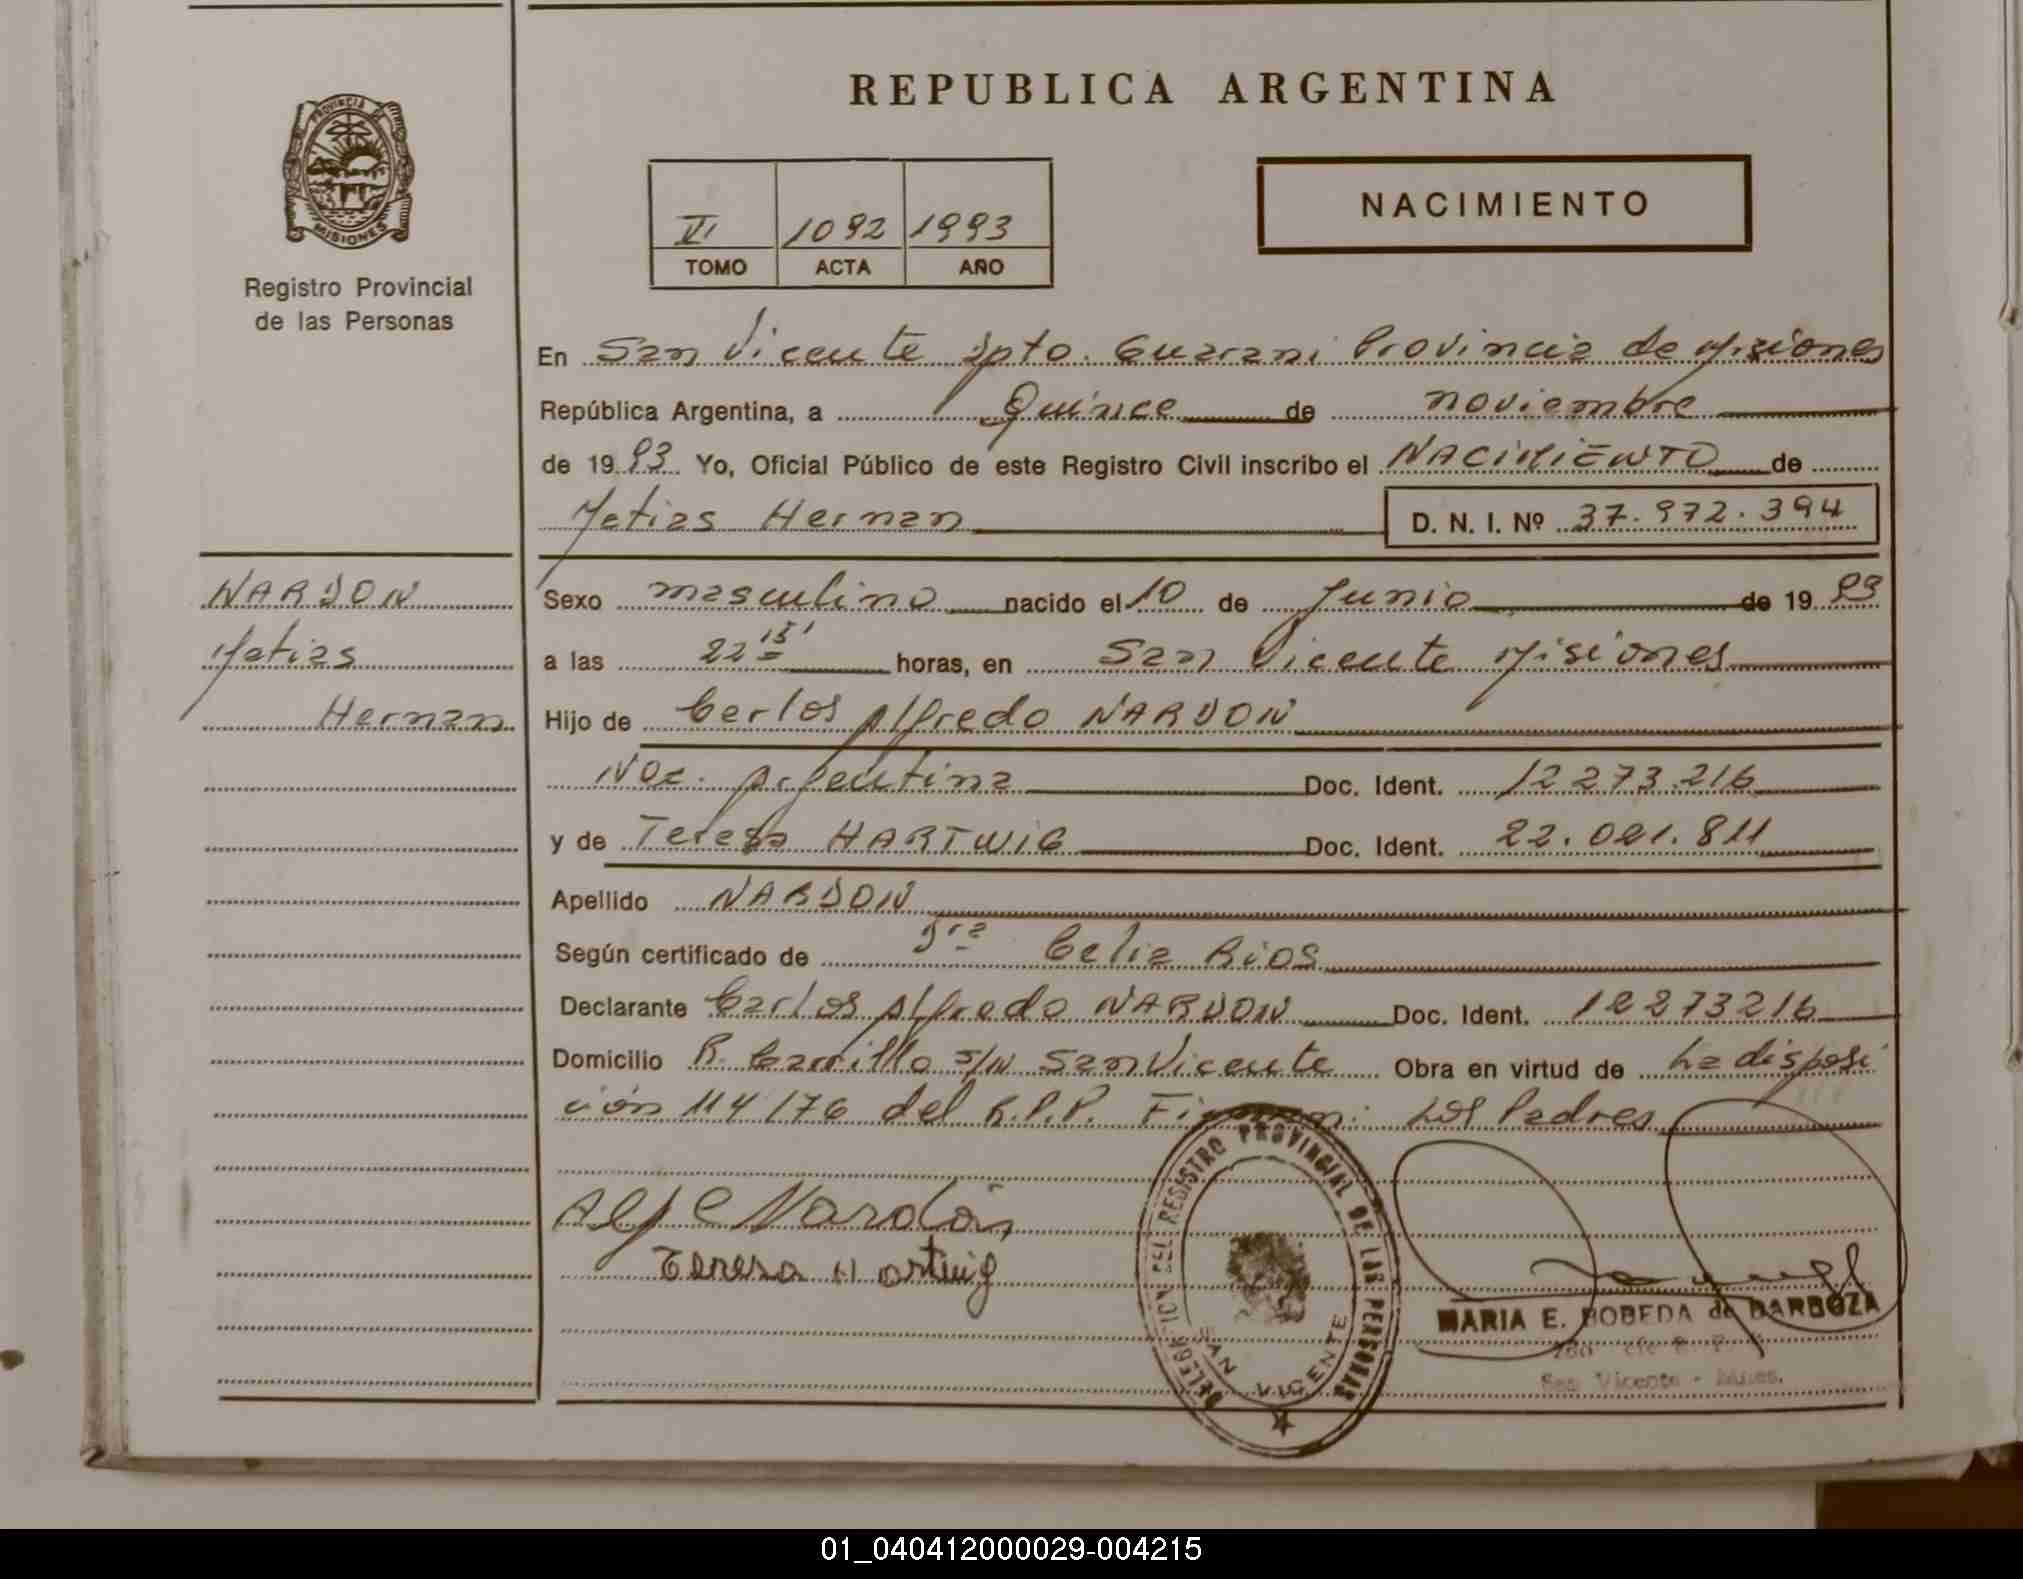 REPUBLICA ARGENTINA
PROVINCIA DE
MISIONES
Registro Provincial
de las Personas
VI 1092 1993
TOMO ACTA AÑO
NACIMIENTO
En San Vicente Dpto. Guarani Provincia de Misiones
República Argentina, a Quince de noviembre
de 1993 Yo, Oficial Público de este Registro Civil inscribo el NACIMIENTO de
Matias Hernan D. N. I. Nº 37.972.394
NARDON
Matias
Hernan
Sexo masculino nacido el 10 de Junio de 1993
a las 22 15' horas, en San Vicente Misiones
Hijo de Carlos Alfredo NARDON
Nac. Argentina Doc. Ident. 12273.216
y de Teresa HARTWIG Doc. Ident. 22.021.811
Apellido NARDON
Según certificado de Dra Celia Rios
Declarante Carlos Alfredo NARDON Doc. Ident. 12273216
Domicilio R. Carrillo S/N San Vicente Obra en virtud de La disposi
ción 114/76 del R.P.P. Firman: Los Padres
Nardón
Teresa Hartwig
DELEGACION DEL REGISTRO PROVINCIAL DE LAS PERSONAS
SAN VICENTE
MARIA E. BOBEDA de BARBOZA
San Vicente - Mnes.
01_040412000029-004215